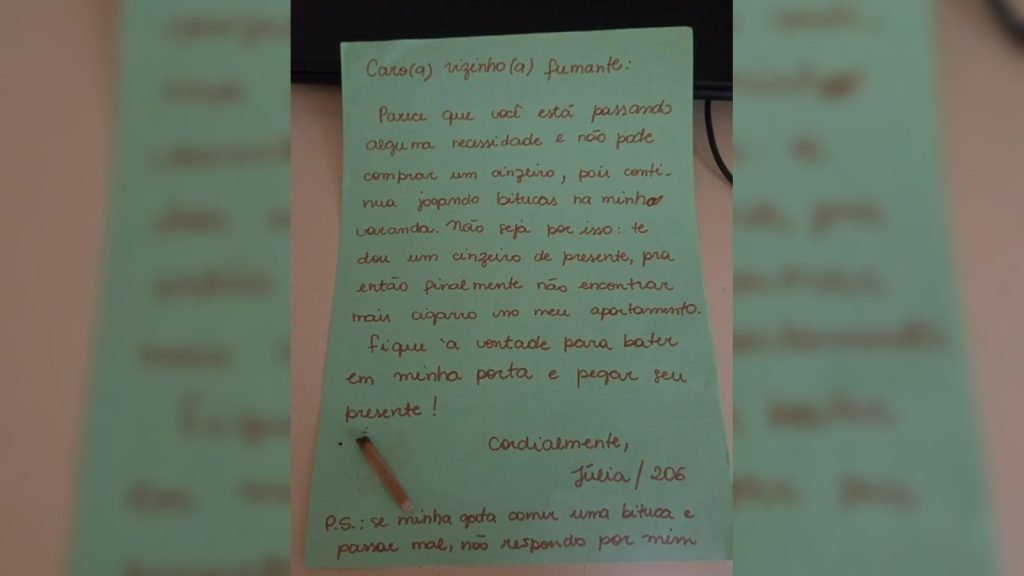 Caro(a) vizinho(a) fumante:
Parece que você está passando
alguma necessidade e não pode
comprar um cinzeiro, pois conti-
nua jogando bitucas na minha
varanda. Não seja por isso: te
dou um cinzeiro de presente, pra
então finalmente não encontrar
mais cigarro no meu apartamento.
Fique à vontade para bater
em minha porta e pegar seu
presente!
Cordialmente,
Júlia/206
P.S.: se minha gata comer uma bituca e
passar mal, não respondo por mim